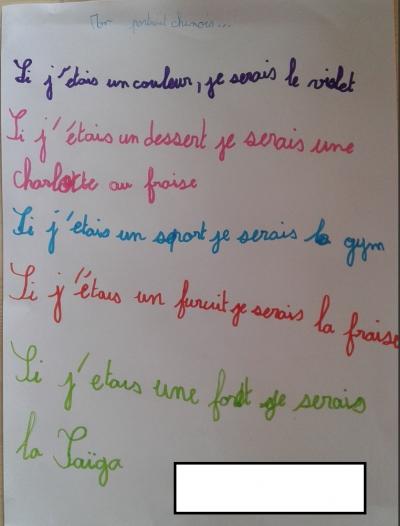 Mon portrait chinois...
Si j'étais un couleur, je serais le violet
Si j'étais un dessert je serais une
charlotte au fraise
Si j'étais un sport je serais la gym
Si j'étais un furuit je serais la fraise
Si j'étais une forêt je serais
la Taïga